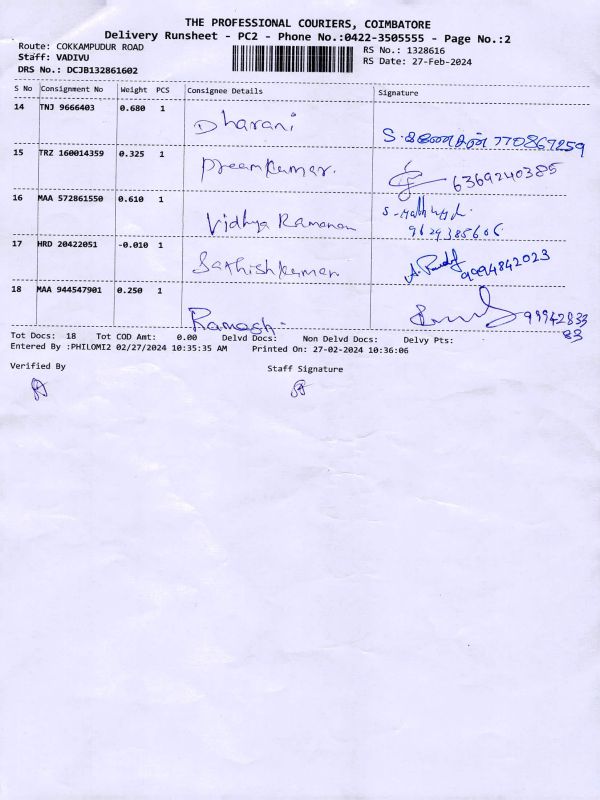 THE PROFESSIONAL COURIERS, COIMBATORE
Delivery Runsheet - PC2 - Phone No.:0422-3505555 - Page No.:2
Route: COKKAMPUDUR ROAD
RS No.: 1328616
Staff: VADIVU
RS Date: 27-Feb-2024
DRS No.: DCJB132861602
S No Consignment No Weight PCS Consignee Details Signature
14 TNJ 9666403 0.680 1
Dharani
S. 770867259
15 TRZ 160014359 0.325 1
Preamkumar.
6369240385
16 MAA 572861550 0.610 1
Vidhya Ramanan
9629385606
17 HRD 20422051 -0.010 1
Sathishkumar
9994842023
18 MAA 944547901 0.250 1
Ramesh.
99942833
83
Tot Docs: 18 Tot COD Amt: 0.00 Delvd Docs: Non Delvd Docs: Delvy Pts:
Entered By :PHILOMI2 02/27/2024 10:35:35 AM Printed On: 27-02-2024 10:36:06
Verified By
Staff Signature